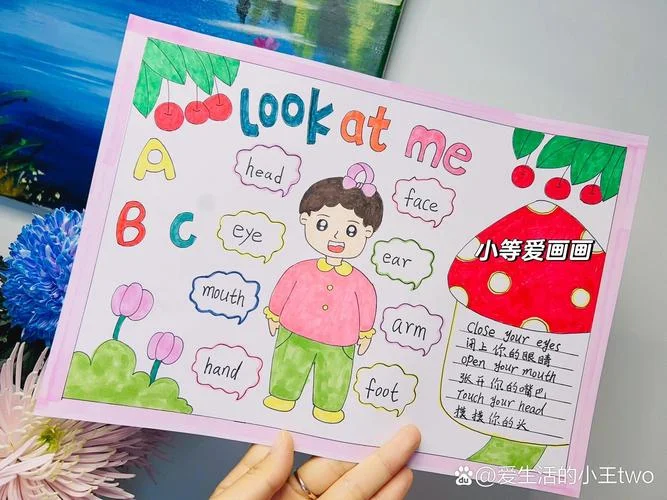 Look at me
A
B C
head
face
eye
ear
mouth
arm
hand
foot
小等爱画画
Close your eyes
闭上你的眼睛
open your mouth
张开你的嘴巴
Touch your head
摸摸你的头
@爱生活的小王two